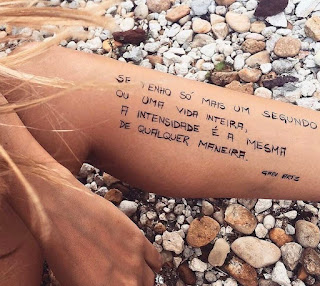 SE TENHO SÓ MAIS UM SEGUNDO
OU UMA VIDA INTEIRA,
A INTENSIDADE É A MESMA
DE QUALQUER MANEIRA.